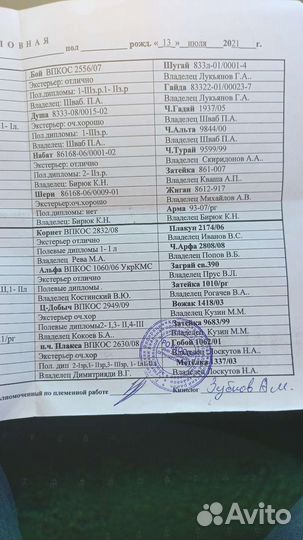 ЛОВНАЯ пол рожд. « 13 » июля 2021 г.
Бой ВПКОС 2556/07
Экстерьер: отлично
Пол.дипломы: 1-IIIз.р, 1- IIз.р
Владелец: Шваб. П.А.
Душа 8333-08/0015-02
Экстерьер: оч.хорошо
Пол. дипломы: 1-IIIз.р.
Владелец: Шваб П.А..
Набат 86168-06/0001-02
Экстерьер: отлично
Пол. дипломы: 2- IIз.р.
Владелец: Бирюк К.Н.
Шери 86168-06/0009-01
Экстерьер:оч.хорошо
Пол.дипломы: нет
Владелец: Бирюк К.Н.
Корнет ВПКОС 2832/08
Экстерьер отлично
Полевые дипломы 1- I л
Владелец Рева М.А.
Альфа ВПКОС 1060/06 УкрКМС
Экстерьер отлично
Полевые дипломы .
Владелец Костинский В.Ю.
Ц-Добыч ВПКОС 2949/09
Экстерьер отлично
Полевые дипломы2- I,3- II,4-III
Владелец Кокоев Б.А..
п.ч. Плакса ВПКОС 2630/08
Экстерьер оч.хор
Владелец Димитриади В.Г.
Шугай 833л-01/0001-4
Владелец Лукьянов Г.А..
Гайда 83322-01/00023-7
Владелец Лукьянов Г.А..
Ч.Гадай 1937/05
Владелец Шваб П.А.
Ч.Альта 9844/00
Владелец Шваб П.А.
Ч.Турай 9599/99
Владелец Скиридонов А.А..
Затейка 861-007
Владелец Кваша А.П..
Жиган 8612-917
Владелец Михайлов А.В.
Арма 93-07/рг
Владелец: Бирюк К.Н.
Плакун 2174/06
Владелец Иванов В.С.
Ч.Арфа 2808/08
Владелец Попов В.Б.
Заграй св.390
Владелец Прус В.Л.
Затейка 1010/рг
Владелец Рогачев В.А..
Вожак 1418/03
Владелец Кузин М.М.
Затейка 9683/99
Владелец Кузин М.М.
Гобой 1062/01
Владелец Лоскутов Н.А..
Метелка 1337/03
Владелец Лоскутов Н.А.
лномоченный по племенной работе Кинолог Зубков А.М.
Avito